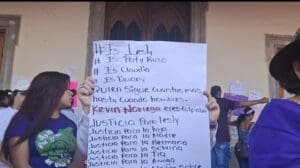 # Is Lesly
# Is Paty Rozo
# Is Claudia
# Is Devany
Quien Sigue cuantas mas
hasta cuando hombres.
Kevin Noriega eres culpable
Justicia Para lesly
Justicia Para la hija
Justicia Para la Madre
Justicia Para la Hermana
Justicia Para la Sobrina
Justicia Para la Tia
Justicia Para la Amiga